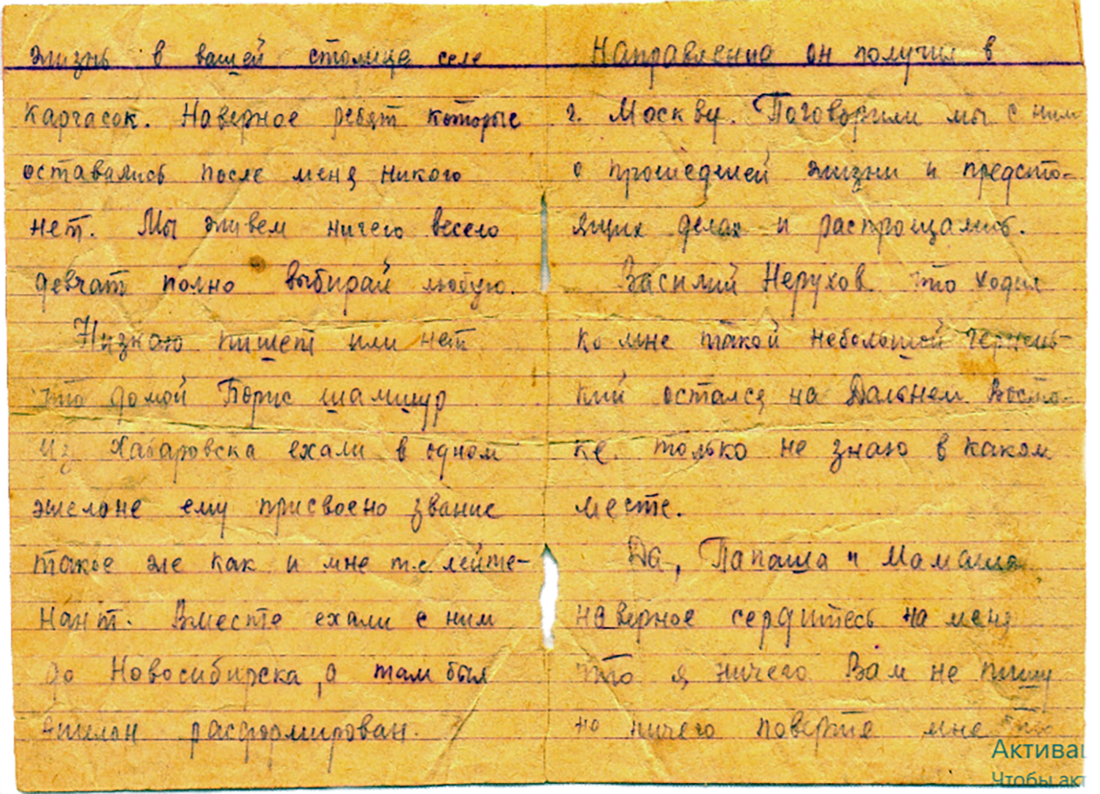 жизнь в вашей столице селе
Каргасок. Наверное ребят которые
оставались после меня никого
нет. Мы живем ничего весело
девчат полно выбирай любую.
Низнаю пишет или нет
что домой Борис Шамшур
из Хабаровска ехали в одном
эшелоне ему присвоено звание
такое же как и мне т.е лейте-
нант. Вместе ехали с ним
до Новосибирска, а там был
эшелон расформирован.
Направление он получил в
г. Москву. Поговорили мы с ним
о прошедшей жизни и предсто-
ящих делах и распрощались.
Василий Нерухов. что ходил
ко мне такой небольшой чернень-
кий остался на Дальнем Восто-
ке. только не знаю в каком
месте.
Да, Папаша и Мамаша
наверное сердитесь на меня
что я ничего Вам не пишу
но ничего поверте мне что
Актива
Чтобы акт